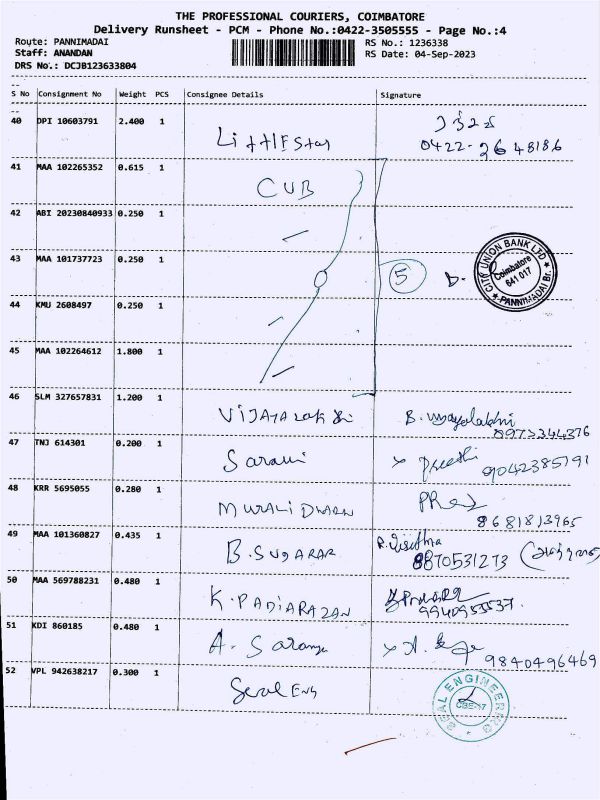 THE PROFESSIONAL COURIERS, COIMBATORE
Delivery Runsheet - PCM - Phone No.:0422-3505555 - Page No.:4
Route: PANNIMADAI RS No.: 1236338
Staff: ANANDAN RS Date: 04-Sep-2023
DRS No.: DCJB123633804
S No Consignment No Weight PCS Consignee Details Signature
40 DPI 10603791 2.400 1
0422-2648186
41 MAA 102265352 0.615 1 CUB
42 ABI 20230840933 0.250 1
43 MAA 101737723 0.250 1 5
CITY UNION BANK LTD
Coimbatore
641 017
PANNIMADAI Br.
44 KMU 2608497 0.250 1
45 MAA 102264612 1.800 1
46 SLM 327657831 1.200 1
8973344376
47 TNJ 614301 0.200 1 Preethi
9042385791
48 KRR 5695055 0.280 1
8681813965
49 MAA 101360827 0.435 1
8870531273
50 MAA 569788231 0.480 1
51 KDI 860185 0.480 1 A. Saranya
9840496469
52 VPL 942638217 0.300 1 Seal Eng
SEAL ENGINEERING
CBE-17